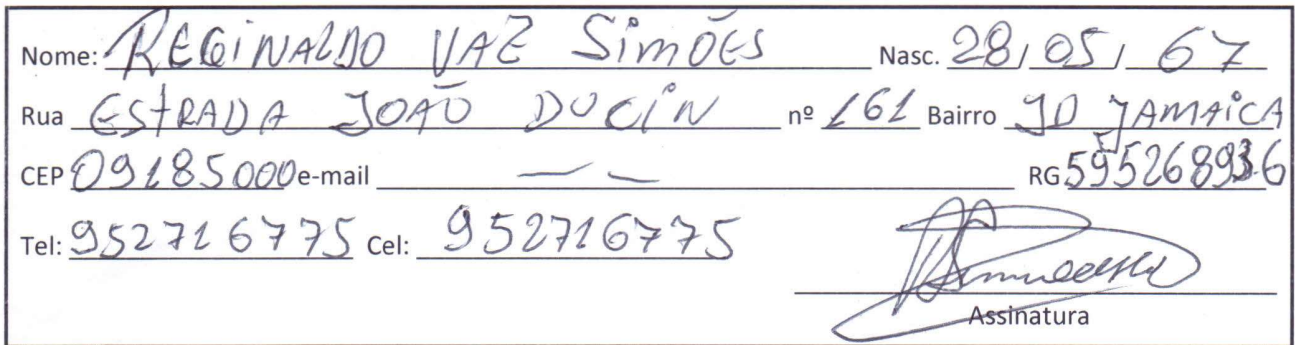 Nome: REGINALDO VAZ SIMÕES Nasc. 28/05/67
Rua ESTRADA JOAO DUCIN nº 161 Bairro JD JAMAICA
CEP 09185000 e-mail — — RG 595268936
Tel: 952716775 Cel: 952716775
Assinatura